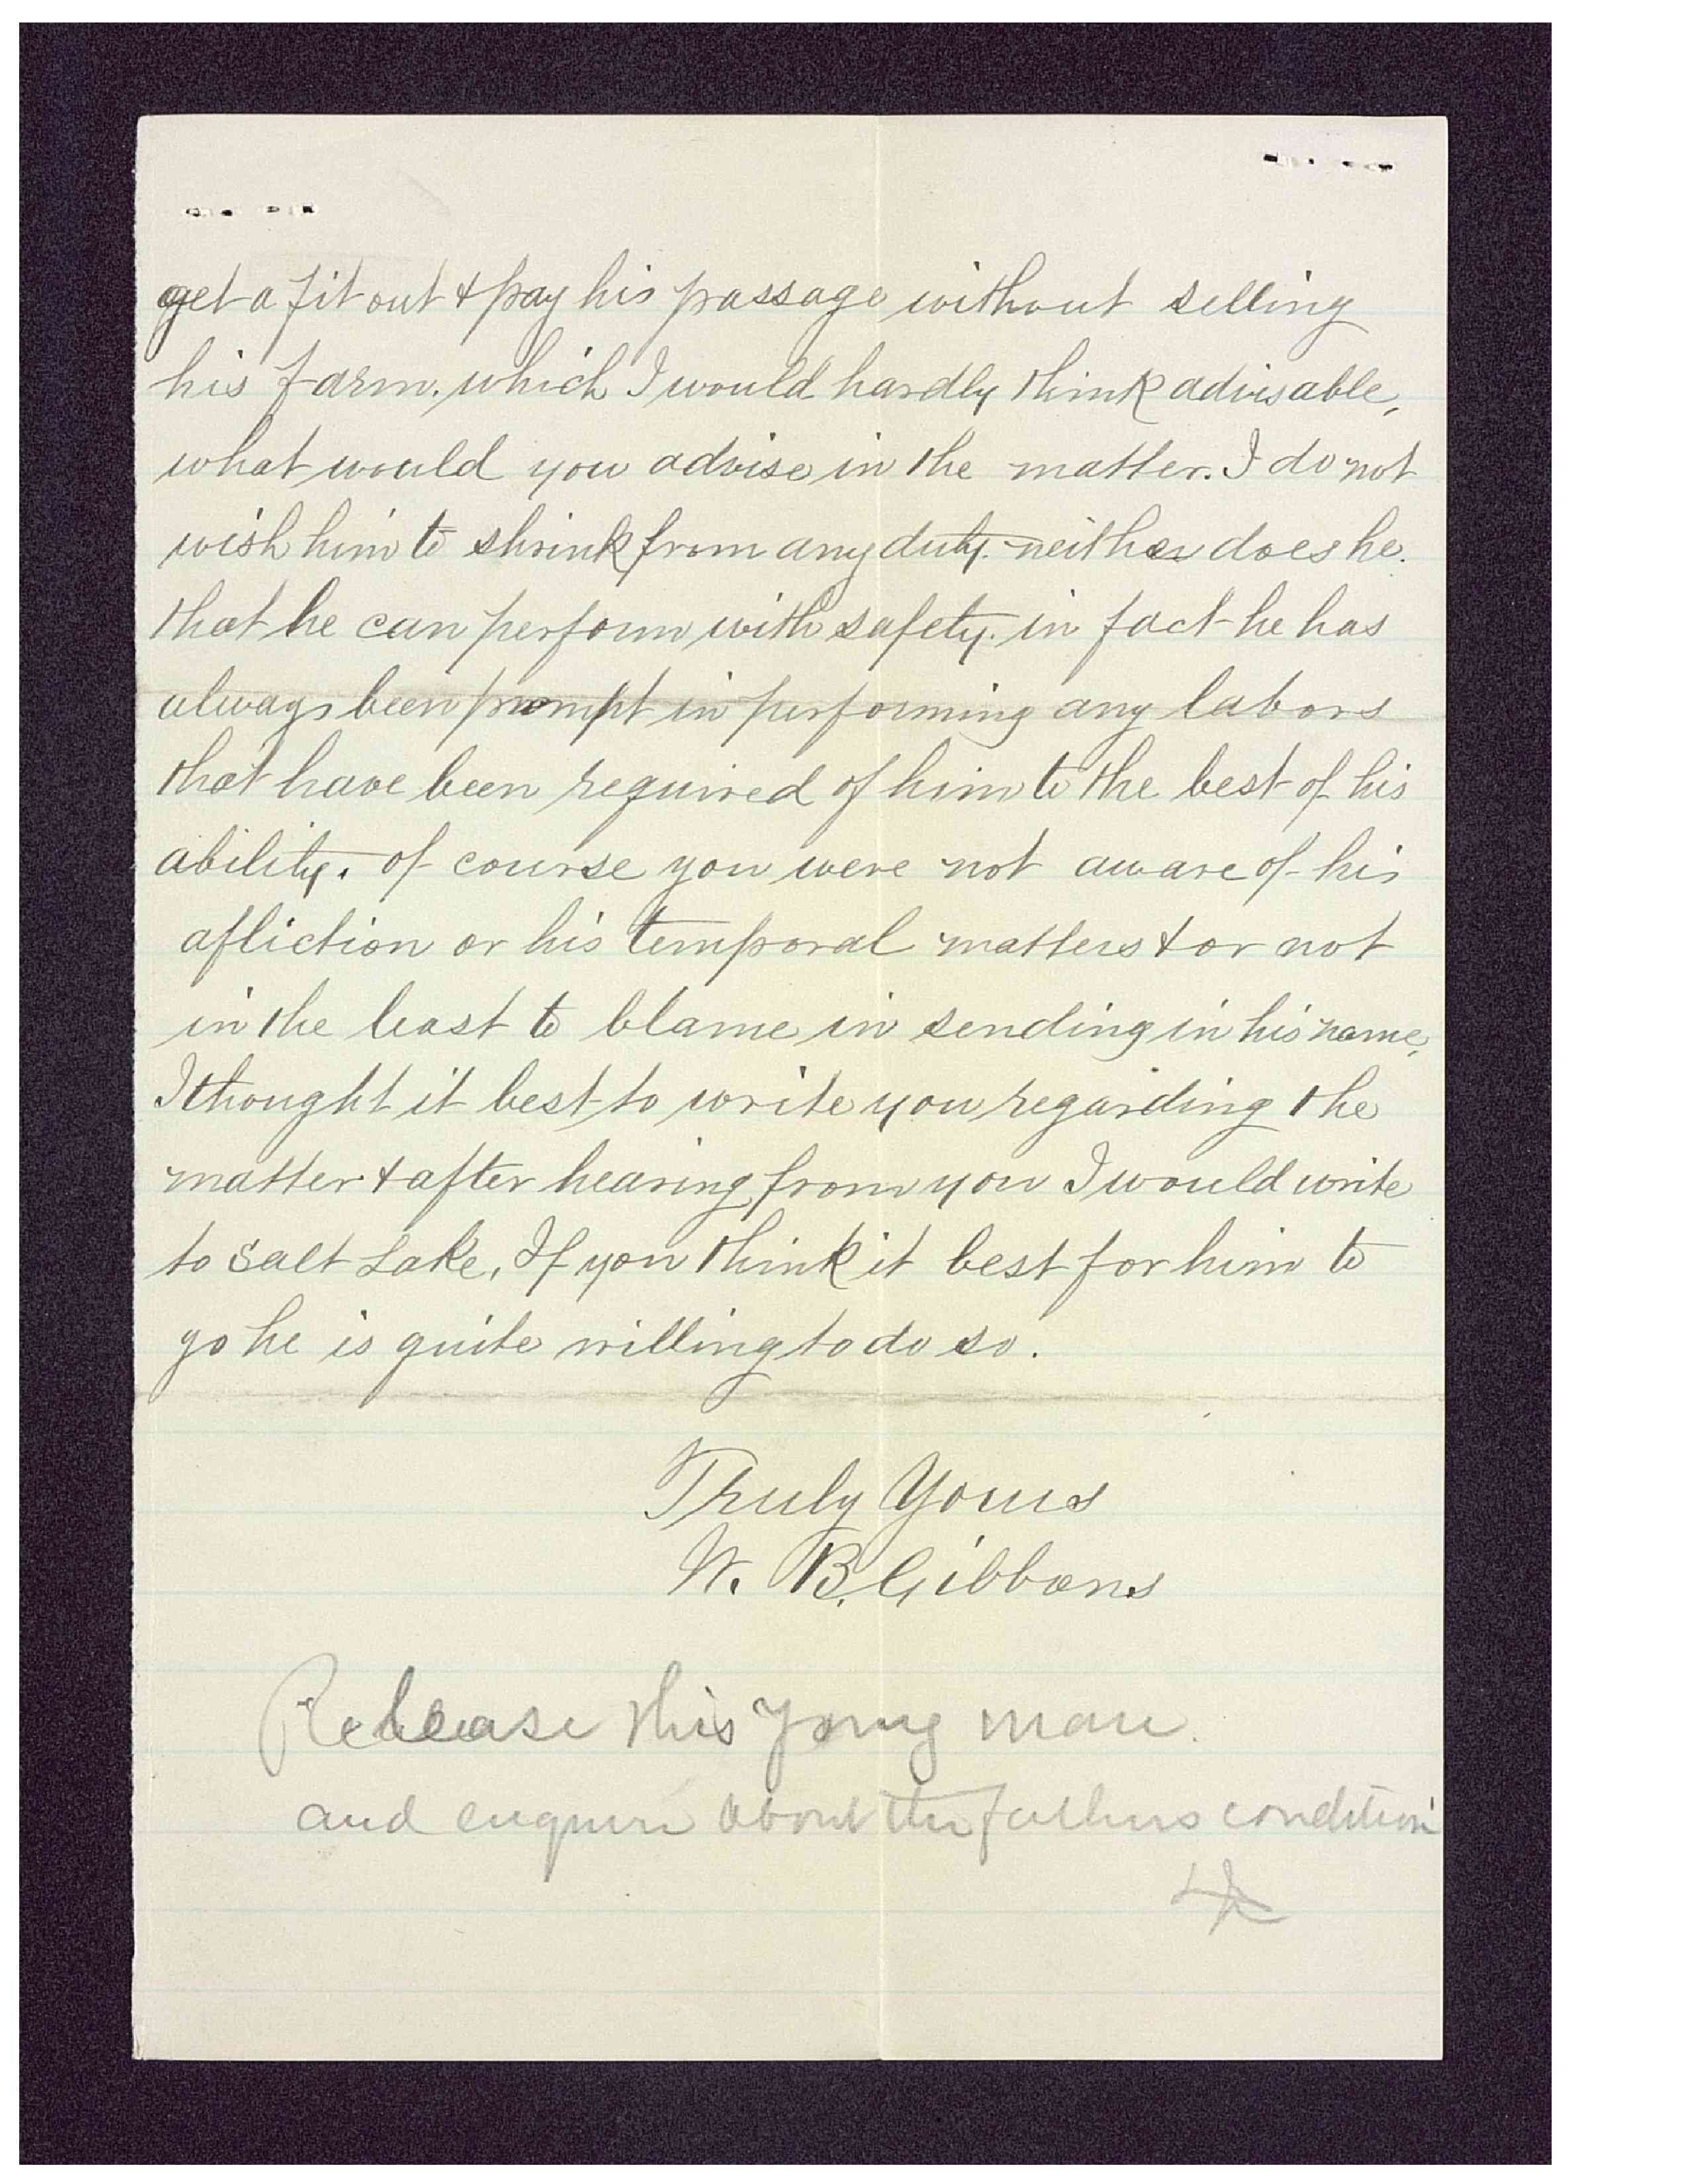 get a fit out & pay his passage without selling
his farm. which I would hardly think advisable,
what would you advise in the matter. I do not
wish him to shrink from any duty. neither does he.
that he can perform with safety. in fact he has
always been prompt in performing any labors
that have been required of him to the best of his
ability. of course you were not aware of his
afliction or his temporal matters & or not
in the least to blame in sending in his name,
I thought it best to write you regarding the
matter & after hearing from you I would write
to Salt Lake, If you think it best for him to
go he is quite willing to do so.
Truly Yours
W. B. Gibbons
Release this young man.
and enquire about the fathers condition